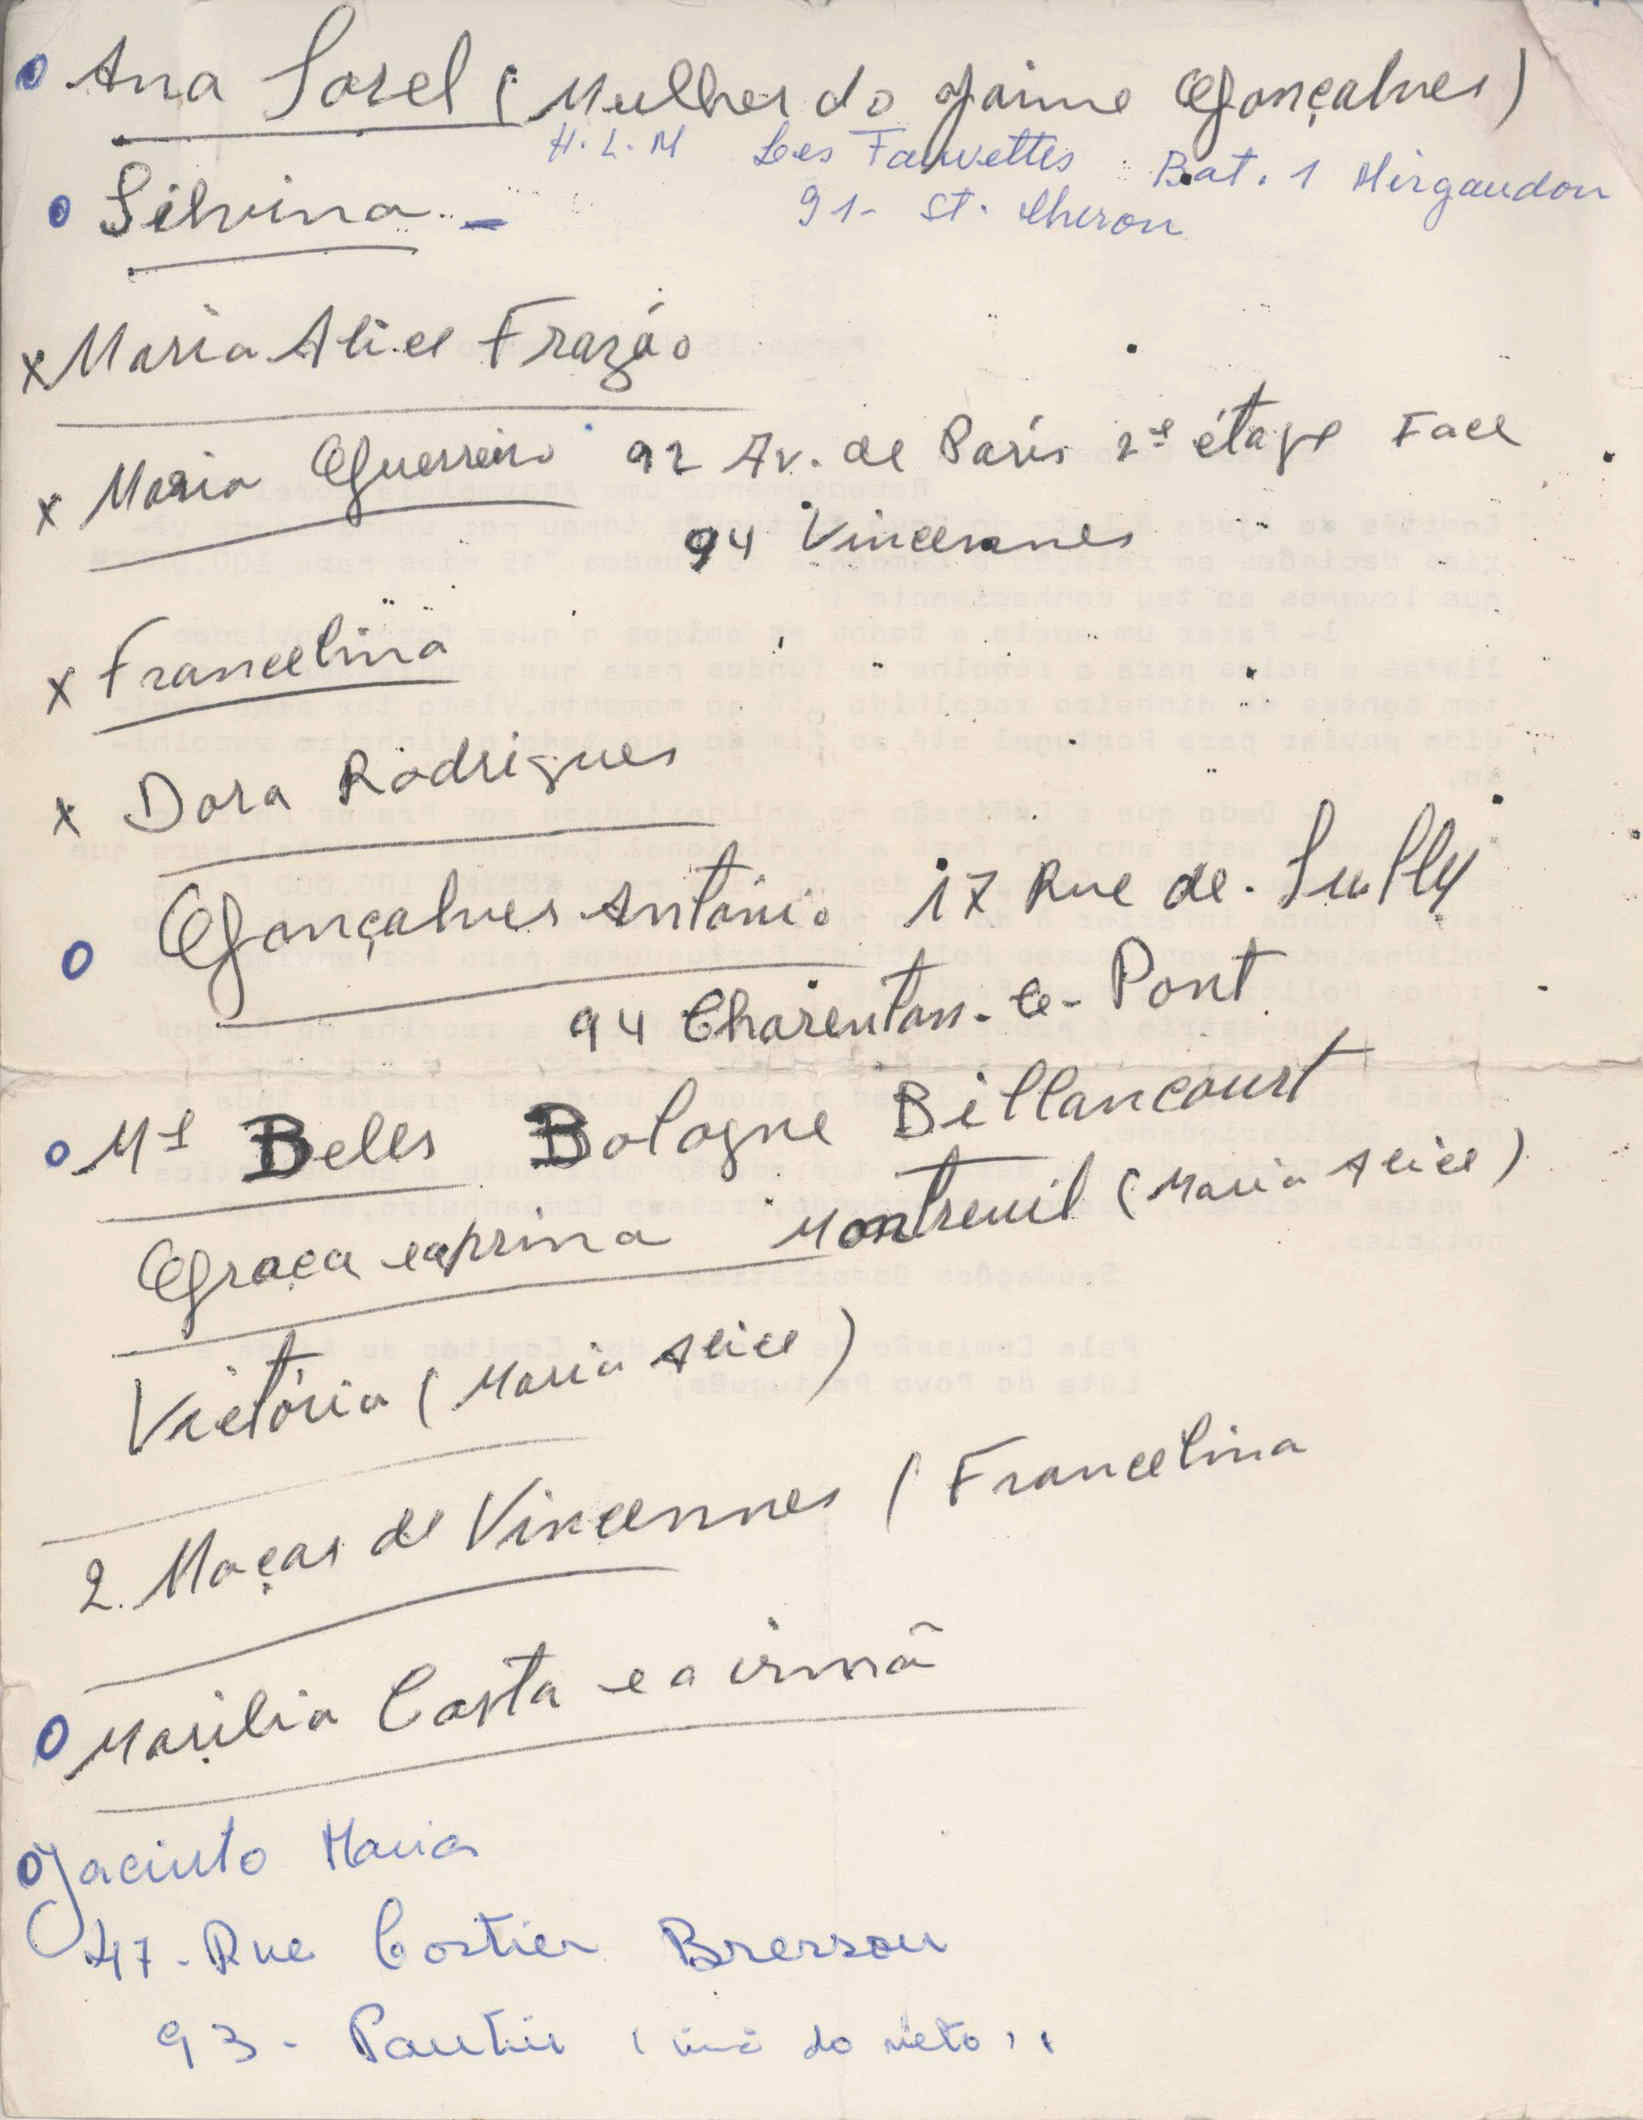 o Ana Sorel (Mulher do Jaime Gonçalves)
H.L.M Les Fauvettes Bat. 1 Mirgaudon
o Silvina -
91- St. Cheron
x Maria Alice Frazão
x Maria Guerreiro 92 Av. de Paris 2e étage Face
94 Vincennes
x Francelina
x Dora Rodrigues
o Gonçalves António 17 Rue de Sully
94 Charenton-le-Pont
o Mª Beles Bologne Billancourt
Graça e a prima Montreuil (Maria Alice)
Victória (Maria Alice)
2. Moças de Vincennes (Francelina
o Marilia Costa e a irmã
o Jacinto Maria
47- Rue Cortier Bresson
93- Pantin ( do neto)